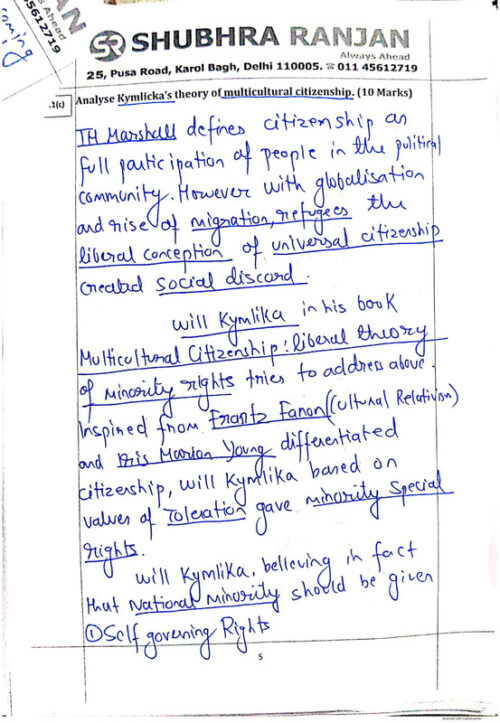 oming
AN
s Ahead
5612719
SR SHUBHRA RANJAN
Always Ahead
25, Pusa Road, Karol Bagh, Delhi 110005. ☎ 011 45612719
.1(c) Analyse Kymlicka's theory of multicultural citizenship. (10 Marks)
TH Marshall defines citizenship as
full participation of people in the political
community. However with globalisation
and rise of migration, refugees the
liberal conception of universal citizenship
created social discord.
will Kymlika in his book
Multicultural Citizenship: liberal theory
of minority rights tries to address above.
Inspired from Frantz Fanon (Cultural Relativism)
and Iris Marian Young differentiated
citizenship, will Kymlika based on
values of Toleration gave minority special
rights.
will Kymlika, believing in fact
that National minority should be given
① Self governing Rights
5